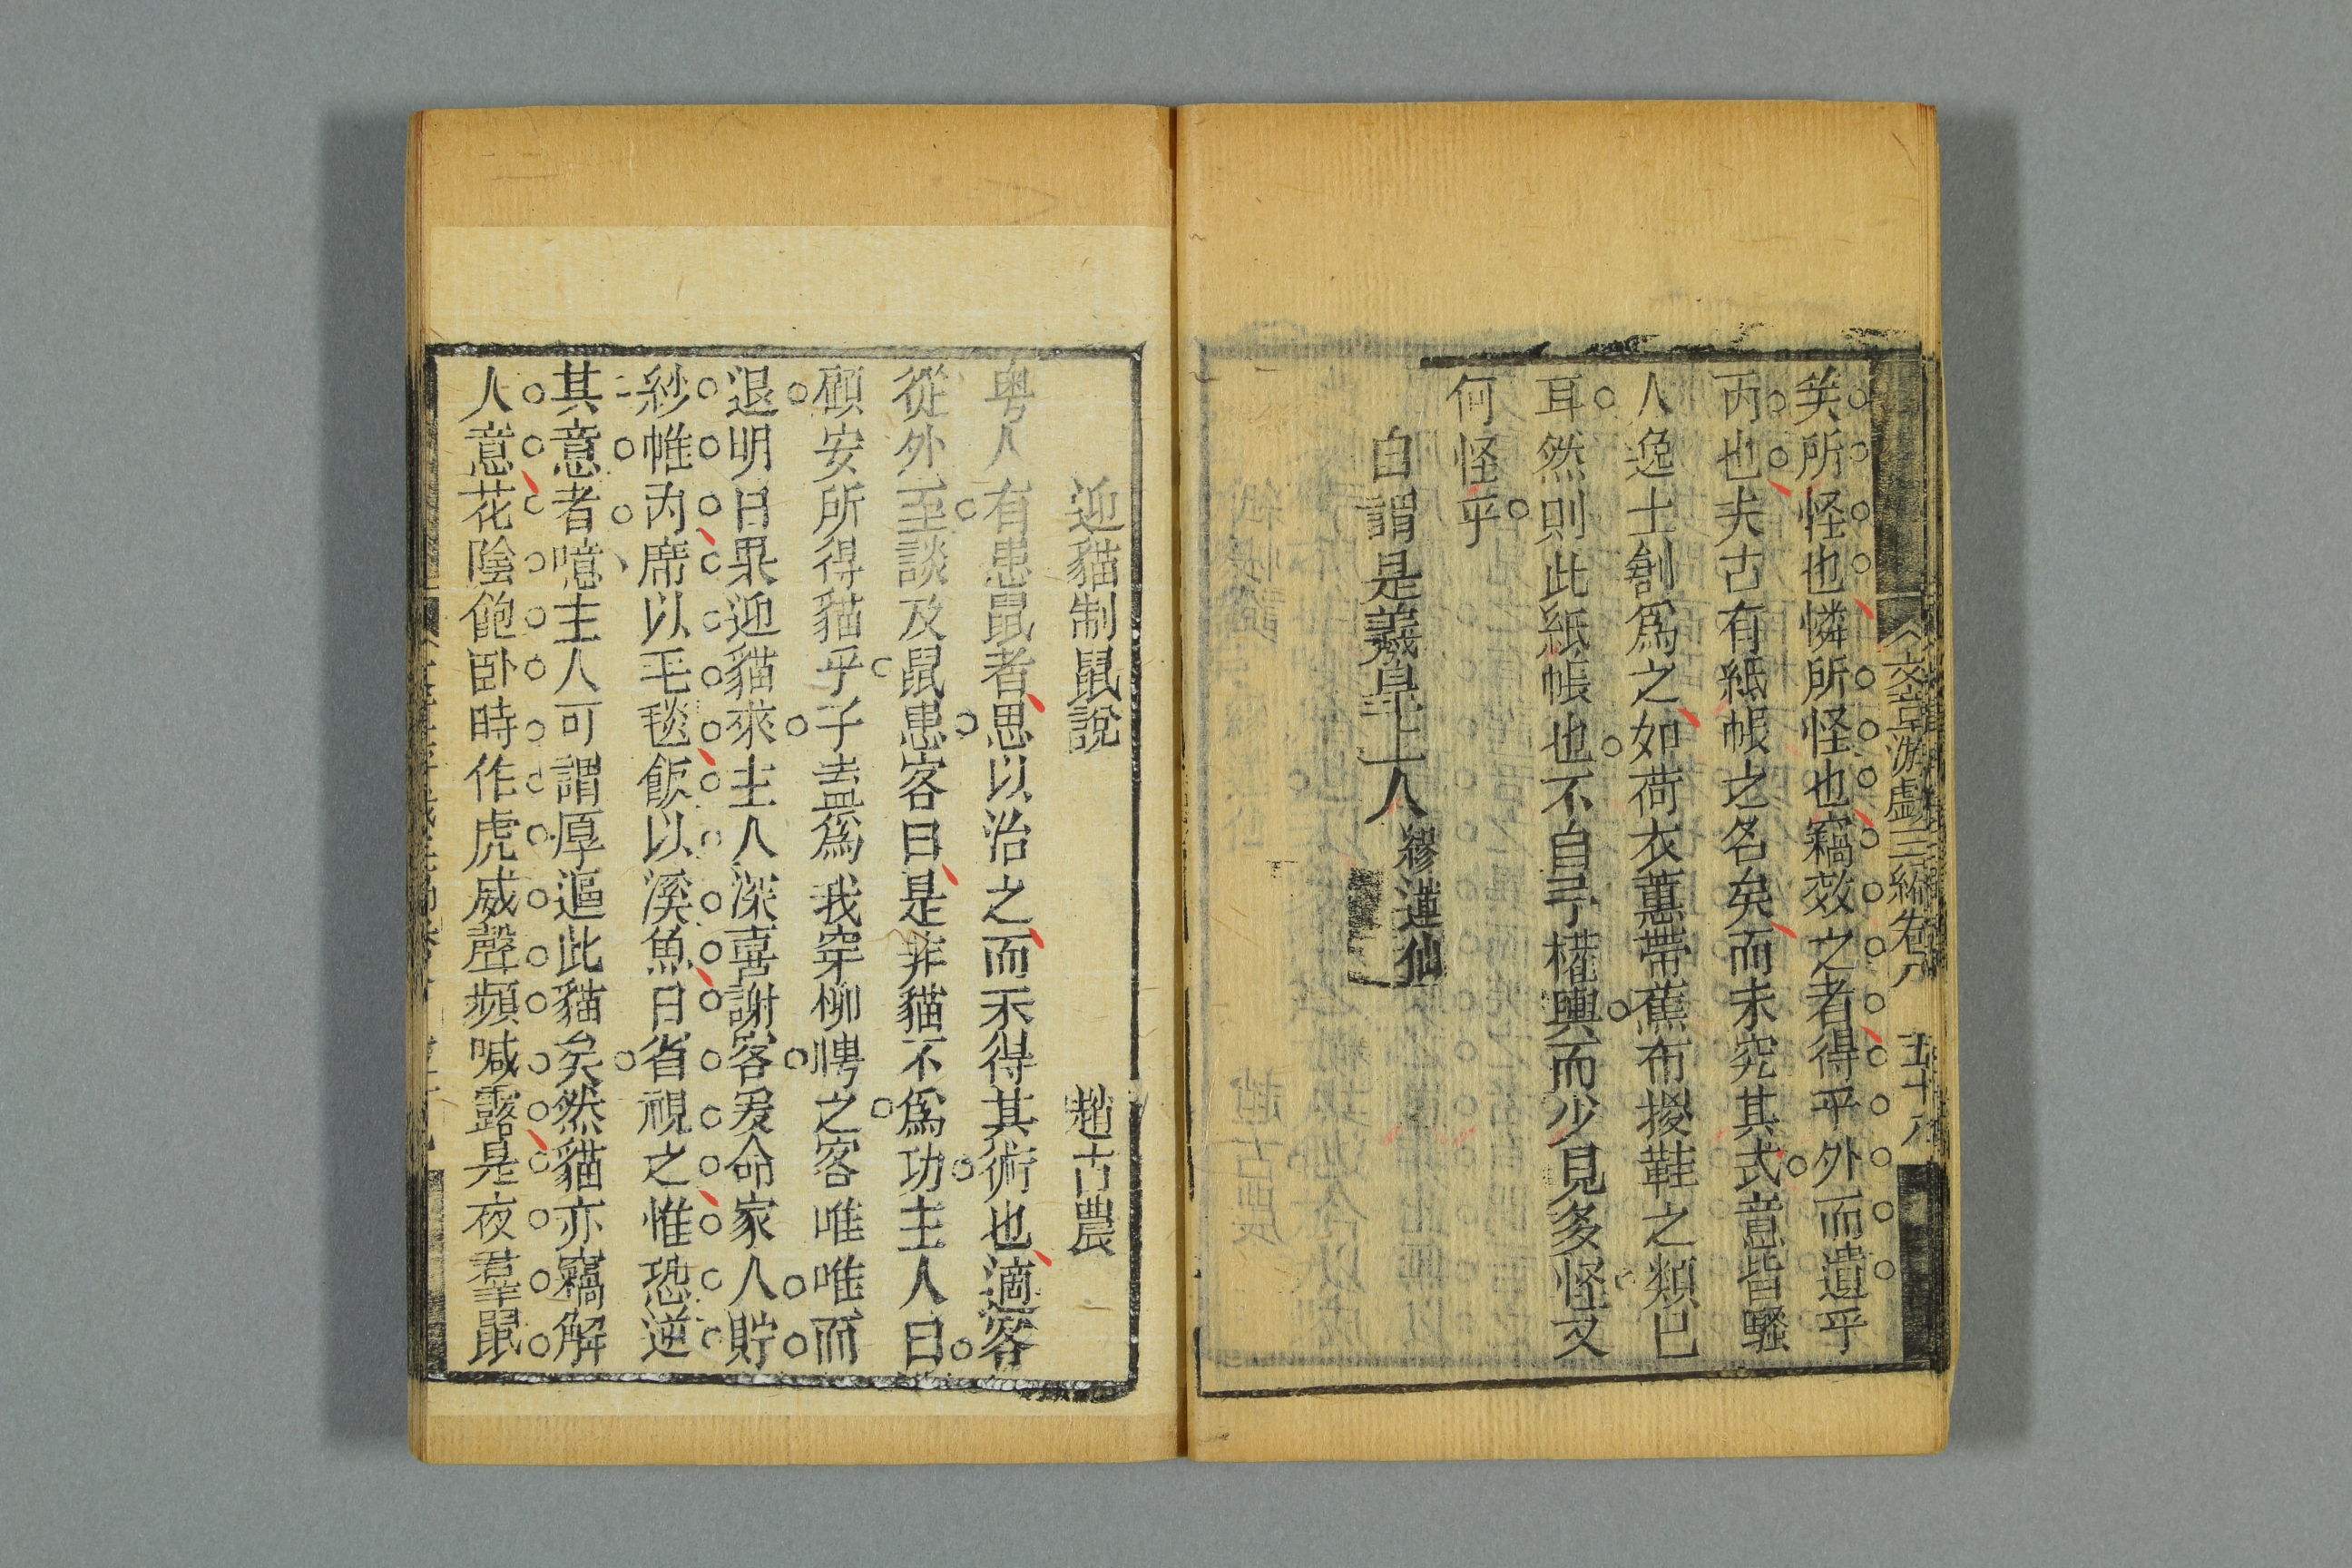 文章游戲三編卷八 五十八
笑所怪也憐所怪也竊效之者得乎外而遺乎
丙也夫古有紙帳之名矣而未究其式意皆騷
人逸士創爲之如荷衣蕙帶蕉布椶鞋之類已
耳然則此紙帳也不自予權輿而少見多怪又
何怪乎
自謂是羲皇上人繆蓮仙
迎貓制鼠說 趙古農
粤人有患鼠者思以治之而不得其術也適客
從外至談及鼠患客曰是非貓不爲功主人曰
顧安所得貓乎子盍爲我穿柳聘之客唯唯而
退明日果迎貓來主人深喜謝客爰命家人貯
紗帷內席以毛毯飯以溪魚日省視之惟恐逆
其意者噫主人可謂厚遇此貓矣然貓亦竊解
人意花陰飽卧時作虎威聲頻喊露是夜羣鼠